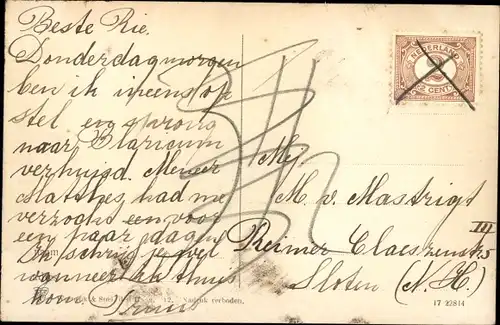 Beste Rie.
Donderdagmorgen
ben ik ineens op
stel en sprong
naar Blaricum
verhuisd. Meneer
Matthes had me
verzocht een voor
een paar dagen
Ik schrijf je wel
wanneer ik thuis
kom
NEDERLAND
2
2 CENT
Mej.
M. v. Mastrigt
Reimer Claeszenstr. 5 III
Sloten (N. H.)
Nadruk verboden.
17 22814